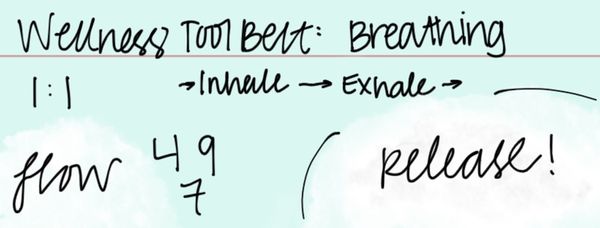 Wellness Tool Belt: Breathing
1:1 →Inhale → Exhale →
flow 4 9 release!
7